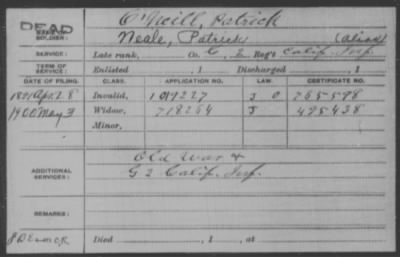 O'Neill, Patrick
DEAD
NAME OF SOLDIER: Neale, Patrick (alias)
SERVICE: Late rank, Co. G, 2 Reg't Calif. Inf.
TERM OF SERVICE: Enlisted , 1 Discharged , 1
DATE OF FILING. CLASS. APPLICATION NO. LAW. CERTIFICATE NO.
1891 Apr. 28 Invalid, 1019227 J O 765598
1900 May 3 Widow, 718264 J 495438
Minor,
ADDITIONAL SERVICES: Old War &
G 2 Calif. Inf.
REMARKS:
Died , 1 , at